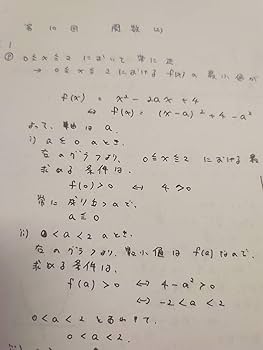 第10回 関数(2)
1
② 0≦x≦2 において 常に 正
→ 0≦x≦2 における f(x) の 最小値が
f(x) = x² - 2ax + 4
⇔ f(x) = (x-a)² + 4 - a²
よって、軸は a.
i) a≦0 のとき.
左のグラフより、 0≦x≦2 における最
求める 条件は.
f(0)>0 ⇔ 4>0
常に 成り立つので.
a≦0
ii) 0<a<2 のとき.
左のグラフより、最小値は f(a) なので.
求める 条件は.
f(a)>0 ⇔ 4-a²>0
⇔ -2<a<2
0<a<2 とあわせて.
0<a<2.